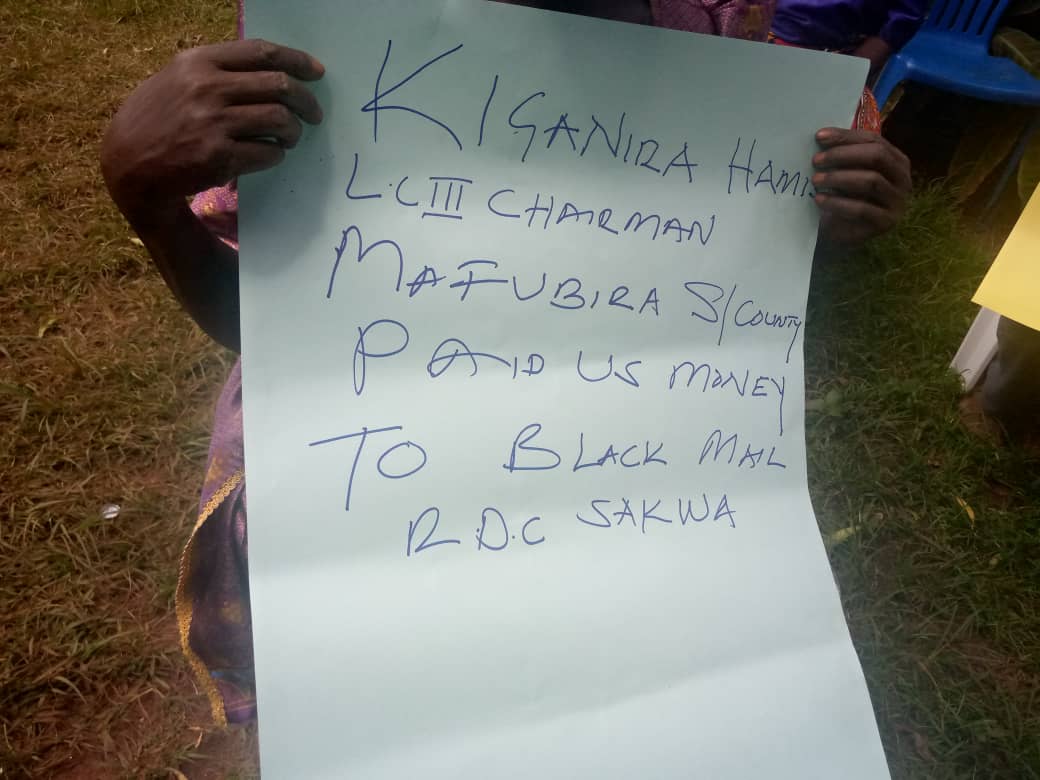 KIGANIRA HAMIS
L.C III CHAIRMAN
MAFUBIRA S/COUNTY
PAID US MONEY
TO BLACK MAIL
R.D.C SAKWA